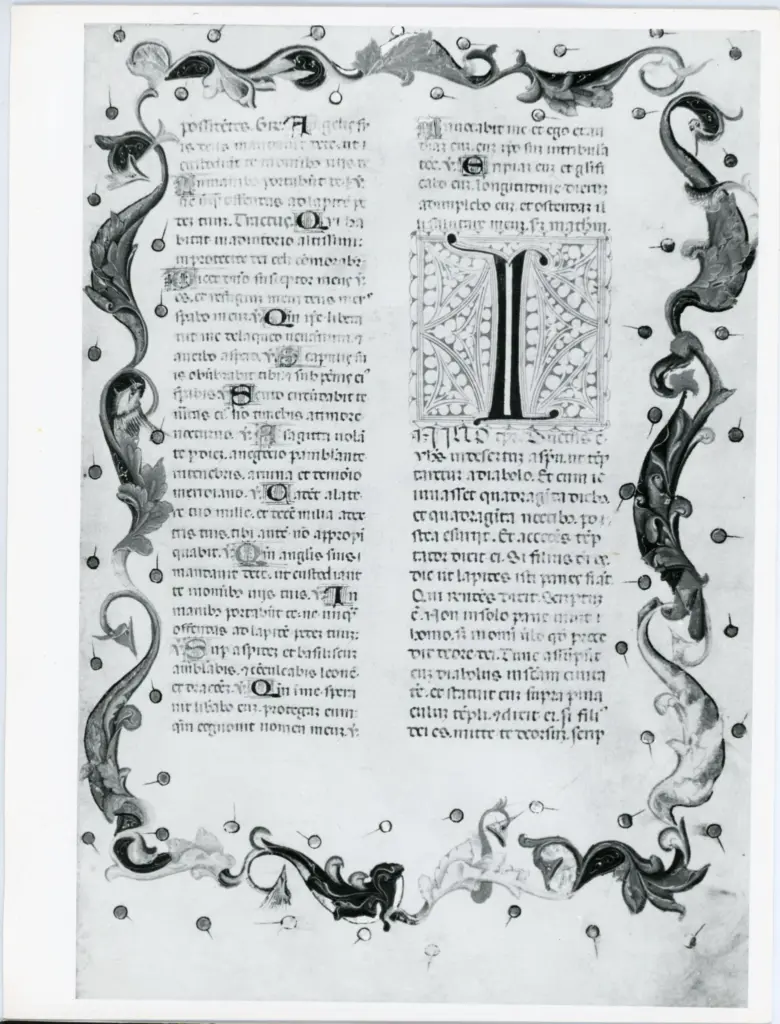 possidētes. Gr. Angelis su
is deus mandauit de te. ut
custodiāt te ī omnibꝰ uiis tu
In manibꝰ portabūt te.
ne ūq̄ offendas ad lapidē pe
dem tuum. Tractus. Qui ha
bitat in adiutorio altissimi:
in protectiōe dei celi cōmorabr̄
Dicet dn̄o susceptor meus
es. et refugium meum deus meꝰ
sp̄abo in eum. ℣. Qm̄ ip̄e libera
uit me de laqueo uenantiū. ⁊
a uerbo aspero. ℣. Scapulis su
is obūbrabit tibi ⁊ sub pēnis eiꝰ
sp̄abis. ℣. Scuto circūdabit te
ueritas eiꝰ nō timebis a timore
nocturno. ℣. A sagitta uolā
te p̄ diem. a negotio p̄ambulante
in tenebris. a ruina et demōio
meridiano. ℣. Cadēt a late
re tuo mille. et decē milia a dex
tris tuis. tibi autē nō appropi
quabit. ℣. Qm̄ anglis suis
mandauit de te. ut custodiant
te in omnibꝰ uiis tuis. ℣. In
manibꝰ portabūt te. ne unq̄
offendas ad lapidē pedem tuum
Sup̄ aspidem et basiliscum
ambulabis. ⁊ cōculcabis leonē
et dracōem. ℣. Qm̄ in me sperā
uit liberabo eum. protegam eum
qm̄ cognouit nomen meum. ℣.
Inuocabit me et ego exau
diam eum. cum ip̄o sum in tribula
tōe. ℣. Eripiam eum et glīfi
cabo eum. longitudine dierum
adimplebo eum. et ostendam il
li salutare meum. Sꝫ matheum.
I
N illo tp̄r. Ductus ē
yhs in desertum a sp̄u. ut tēp
taretur a diabolo. Et cum ie
iunasset quadragīta diebꝰ.
et quadragīta noctibꝰ. po
stea esuriit. Et accedēs tēp
tator dixit ei. Si filius dei es.
dic ut lapides isti panes fiāt.
Qui respōdēs dixit. Scriptum
ē. Non in solo pane uiuit
homo. sꝫ in omni ūbo qd̄ proce
dit de ore dei. Tunc assūpsit
eum diabolus in sc̄am ciuita
tē. et statuit eum supra pina
culum tēpli. ⁊ dixit ei. si filiꝰ
dei es. mitte te deorsum. scrip